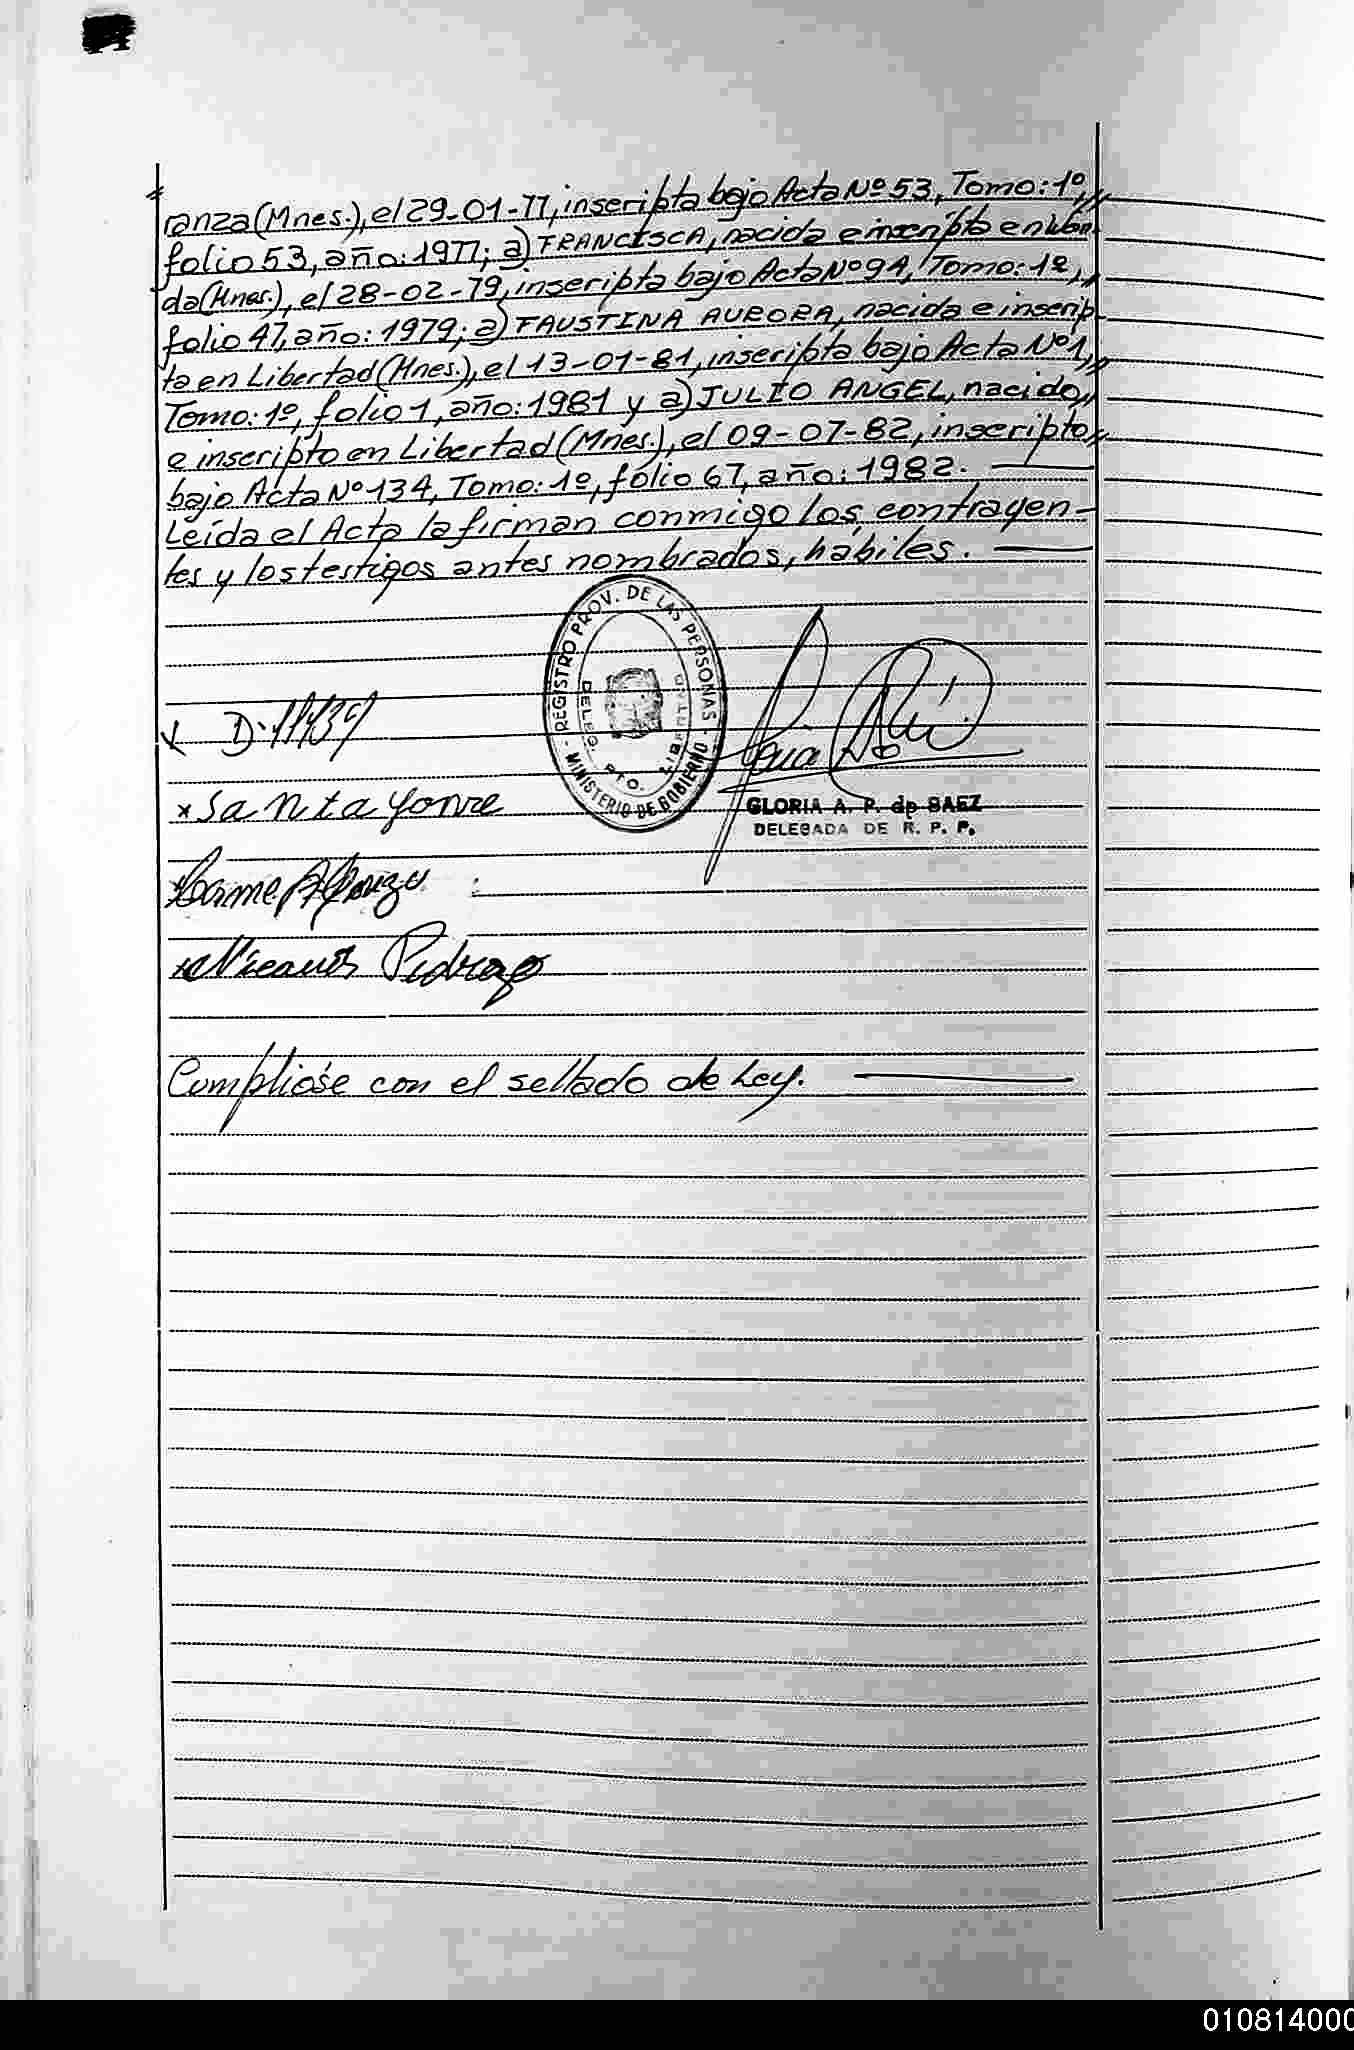 ranza (Mnes.), el 29-01-77, inscripta bajo Acta Nº 53, Tomo: 1º,
folio 53, año: 1977; a) FRANCISCA, nacida e inscripta en Wan-
da (Mnes.), el 28-02-79, inscripta bajo Acta Nº 94, Tomo: 1º,
folio 47, año: 1979; a) FAUSTINA AURORA, nacida e inscrip-
ta en Libertad (Mnes.), el 13-01-81, inscripta bajo Acta Nº 1,
Tomo: 1º, folio 1, año: 1981 y a) JULIO ANGEL, nacido,
e inscripto en Libertad (Mnes.), el 09-07-82, inscripto
bajo Acta Nº 134, Tomo: 1º, folio 67, año: 1982.
Leída el Acta la firman conmigo los contrayen-
tes y los testigos antes nombrados, hábiles.
REGISTRO PROV. DE LAS PERSONAS
DELEG. PTO. LIBERTAD
MINISTERIO DE GOBIERNO
GLORIA A. P. de SAEZ
DELEGADA DE R. P. P.
x Santa
Pedrozo
Cumplióse con el sellado de Ley.
010814000